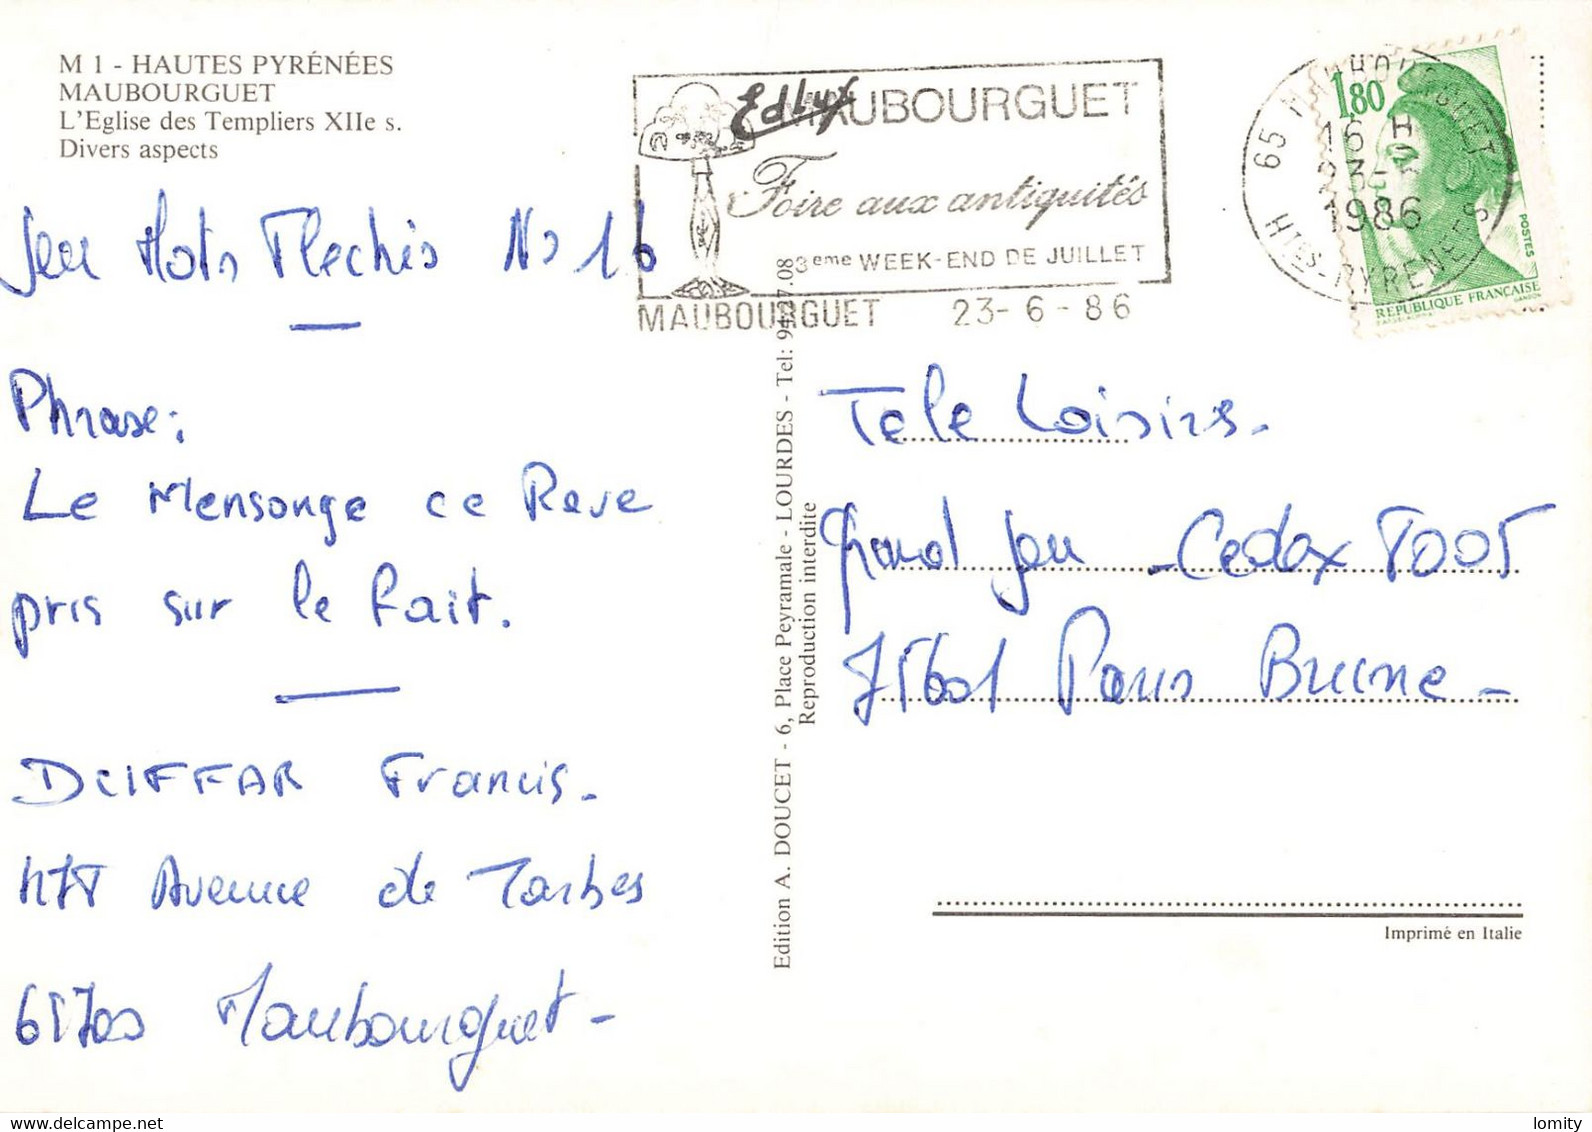 M 1 - HAUTES PYRÉNÉES
MAUBOURGUET
L'Eglise des Templiers XIIe s.
Divers aspects
MAUBOURGUET
Foire aux antiquités
3eme WEEK-END DE JUILLET
MAUBOURGUET 23-6-86
65 MAUBOURGUET
16 H
23-6
1986
HTES-PYRENEES
1,80
POSTES
REPUBLIQUE FRANÇAISE
Jeu Mots Flechés No 16
Phrase:
Le Mensonge ce Reve
pris sur le fait.
Francis.
Avenue de Tarbes
65700 Maubourguet-
Edition A. DOUCET - 6, Place Peyramale - LOURDES - Tel: 94.27.08
Reproduction interdite
Tele Loisirs.
Grand Jeu - Cedex 7005
75601 Paris Brune -
Imprimé en Italie
lomity